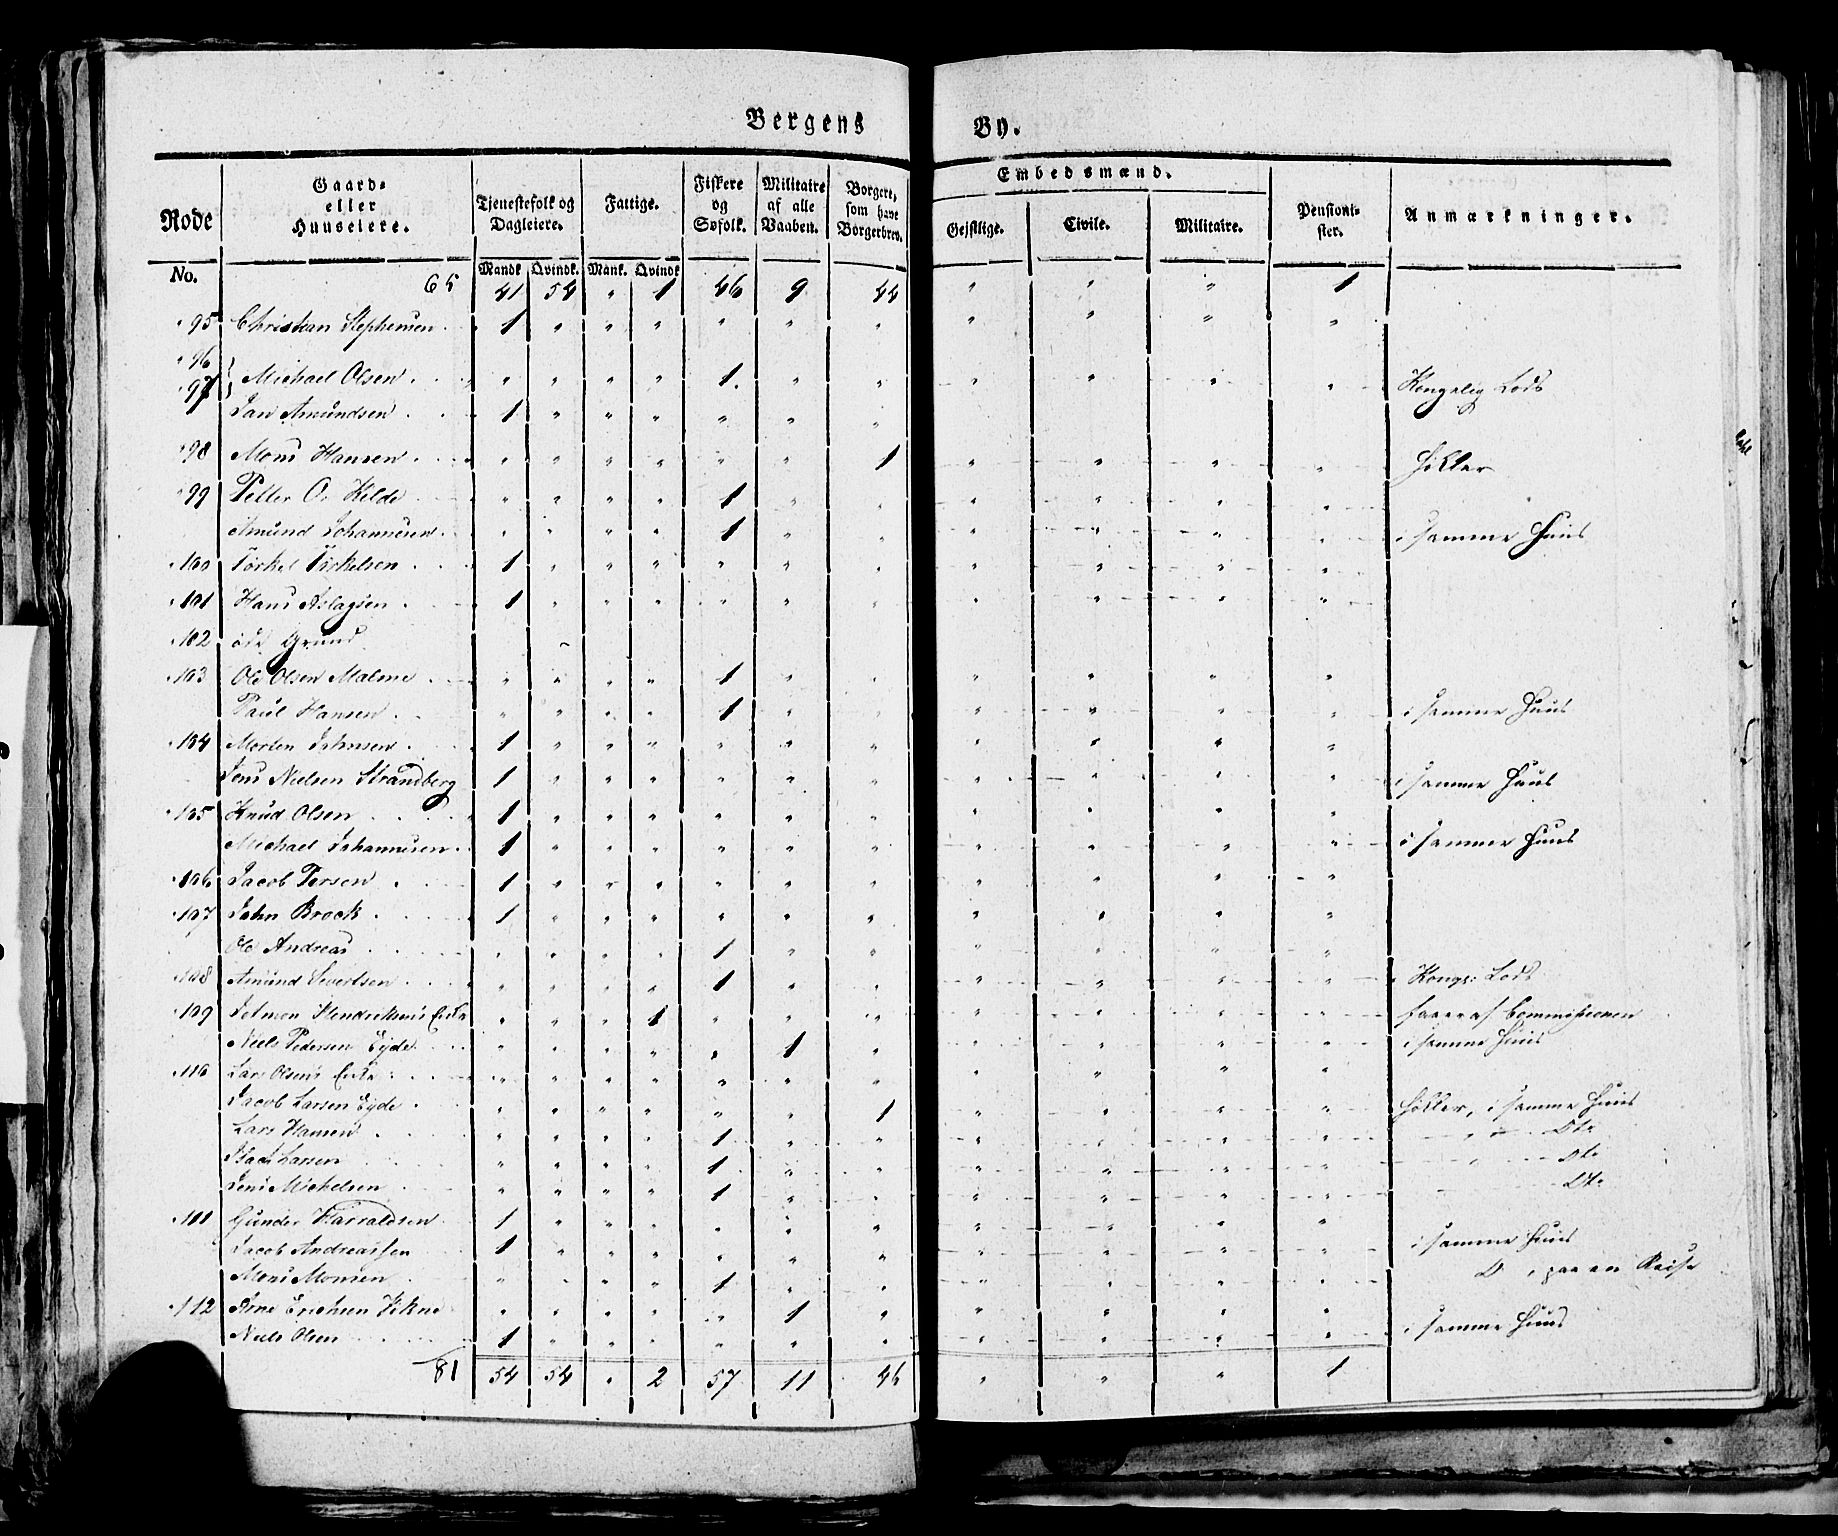 Bergens By.
Rode No. Gaard- eller Huuseiere. Tjenestefolk og Dagleiere. Mandk. Qvindk. Fattige. Mank. Qvindk. Fiskere og Søfolk. Militaire af alle Vaaben. Borgere, som have Borgerbrev. Embedsmænd. Gejstlige. Civile. Militaire. Pensionister. Anmærkninger.
65 41 54 " 1 46 9 44 " " " 1
95 Christian Stephensen 1 " " " " " " " " " "
96
97 } Michael Olsen " " " " 1 " " " " " " Kongelig Lods
Jan Amundsen 1 " " " " " "
98 Mons Hansen " " " " " " 1 " " " " Høker
99 Petter O. Kilde " " " " 1 " " " " " "
Amund Johannesen " " " " 1 " " " " " " i samme Huus
100 Torkel Tirkelsen 1 " " " " " " " " " "
101 Hans Aslagsen 1 " " " " " " " " " "
102 øde Grund
103 Ole Olsen Malme " " " " 1 " " " " " "
Paul Hansen " " " " 1 " " " " " " i samme Huus
104 Morten Johnsen 1 " " " " " " " " " "
Jens Nielsen Strandberg 1 " " " " " " " " " " i samme Huus
105 Knud Olsen 1 " " " " " " " " " "
Michael Johannesen 1 " " " " " " " " " " i samme Huus
106 Jacob Persen 1 " " " " " " " " " "
107 John Brock 1 " " " " " " " " " "
Ole Andreas " " " " 1 " " " " " "
108 Amund Sivertsen " " " " 1 " " " " " " Kongs: Lods
109 Hendriksens Enke " " " 1 " " " " " " " faaer af Commissionen
Niels Pedersen Eyde " " " " " 1 " " " " " i samme Huus
110 Lars Olsens Enke " " " " " " " " " " "
Jacob Larsen Eyde " " " " " " 1 " " " " Høker, i samme Huus
Lars Hansen " " " " 1 " " " Dto
Isach Larsen " " " " 1 " " " " " " Dto
Jens Michelsen " " " " 1 " " " " " " Dto
111 Gunder Harraldsen 1 " " " " " " " " " "
Jacob Andreassen 1 " " " " " " " " " " i samme Huus
Mons Monsen " " " " 1 " " " " " " D , paa en Reise
112 Arne Erichsen Vikne " " " " " 1 " " " " "
Niels Olsen 1 " " " " " " " " " " i samme Huus
81 54 54 " 2 57 11 46 " " " 1